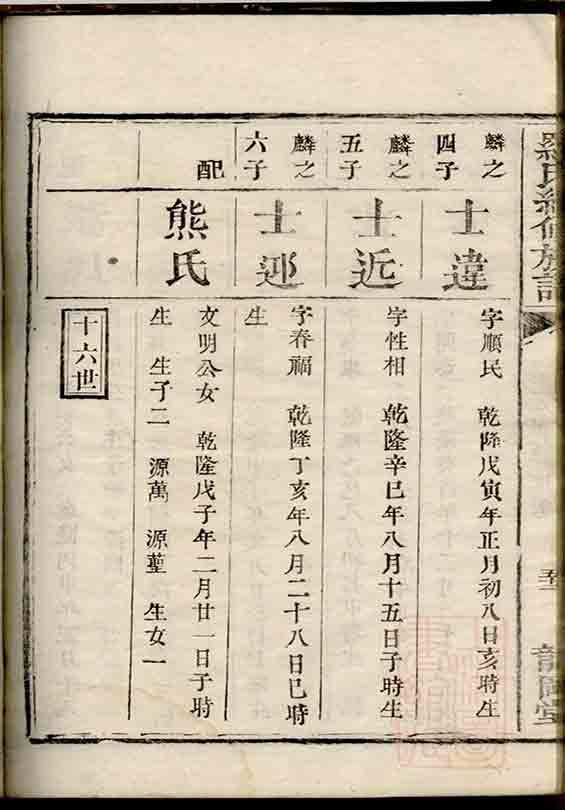 羅氏續修族譜
麟之
四子
士違
字順民 乾隆戊寅年正月初八日亥時生
麟之
五子
士近
字性相 乾隆辛巳年八月十五日子時生
麟之
六子
士邇
字春福 乾隆丁亥年八月二十八日巳時
生
配
熊氏
文明公女 乾隆戊子年二月廿一日子時
生 生子二 源萬 源蓳 生女一
十六世